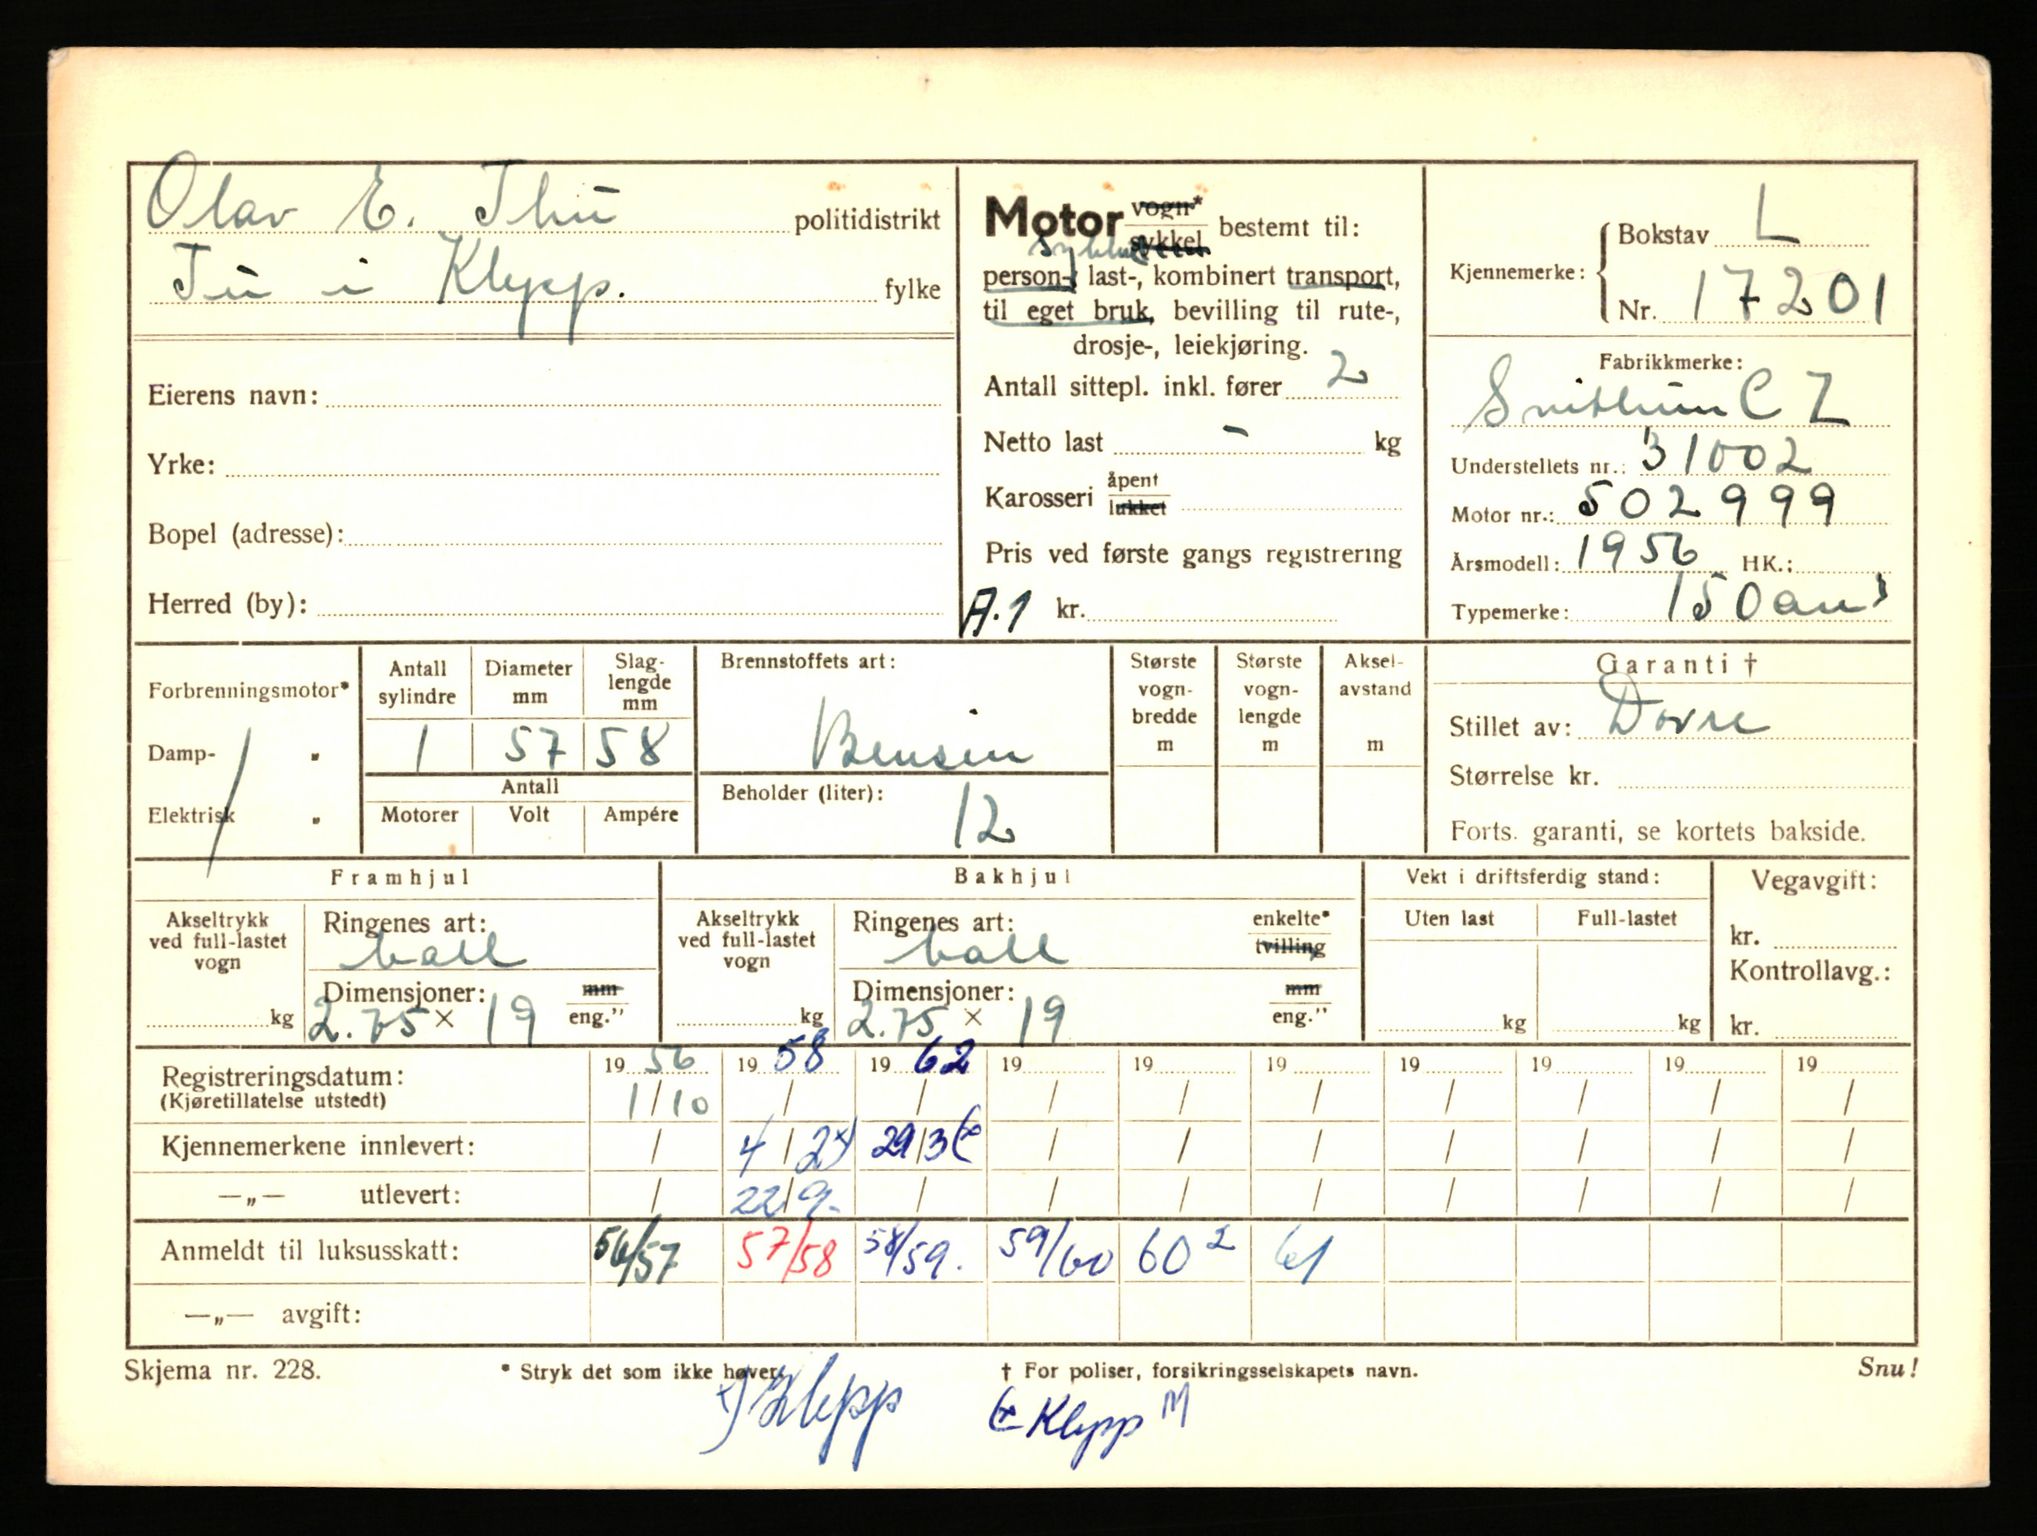 Olav E. Thu politidistrikt
Tu i Klepp. fylke
Eierens navn:
Yrke:
Bopel (adresse):
Herred (by):
Motor vogn* sykkel bestemt til:
sykkel
person-, last-, kombinert transport,
til eget bruk, bevilling til rute-,
drosje-, leiekjøring.
Antall sittepl. inkl. fører 2
Netto last - kg
Karosseri åpent lukket
Pris ved første gangs registrering
A.1 kr.
Kjennemerke: Bokstav L
Nr. 17201
Fabrikkmerke:
Svithun CZ
Understellets nr.: 31002
Motor nr.: 502999
Årsmodell: 1956 HK.:
Typemerke: 150
Forbrenningsmotor*
Damp- „
Elektrisk „
Antall sylindre Diameter mm Slag-lengde mm
1 57 58
Antall
Motorer Volt Ampére
Brennstoffets art:
Bensin
Beholder (liter):
12
Største vogn-bredde m
Største vogn-lengde m
Aksel-avstand m
Garanti †
Stillet av: Dovre
Størrelse kr.
Forts. garanti, se kortets bakside.
Framhjul
Akseltrykk ved full-lastet vogn
kg
Ringenes art:
ball
Dimensjoner: mm
2.75 × 19 eng."
Bakhjul
Akseltrykk ved full-lastet vogn
kg
Ringenes art: enkelte*
ball tvilling
Dimensjoner: mm
2.75 × 19 eng."
Vekt i driftsferdig stand:
Uten last Full-lastet
kg kg
Vegavgift:
kr.
Kontrollavg.:
kr.
Registreringsdatum: 19 56 19 58 19 62 19 19 19 19 19 19 19
(Kjøretillatelse utstedt) 1/10 / / / / / / / / /
Kjennemerkene innlevert: / 4/2 x) 29/3 / / / / / / /
—„— utlevert: / 22/9. / / / / / / / /
Anmeldt til luksusskatt: 56/57 57/58 58/59. 59/60 60 2 61
—„— avgift:
Skjema nr. 228. * Stryk det som ikke høver. † For poliser, forsikringsselskapets navn. Snu!
x) Klepp Klepp M